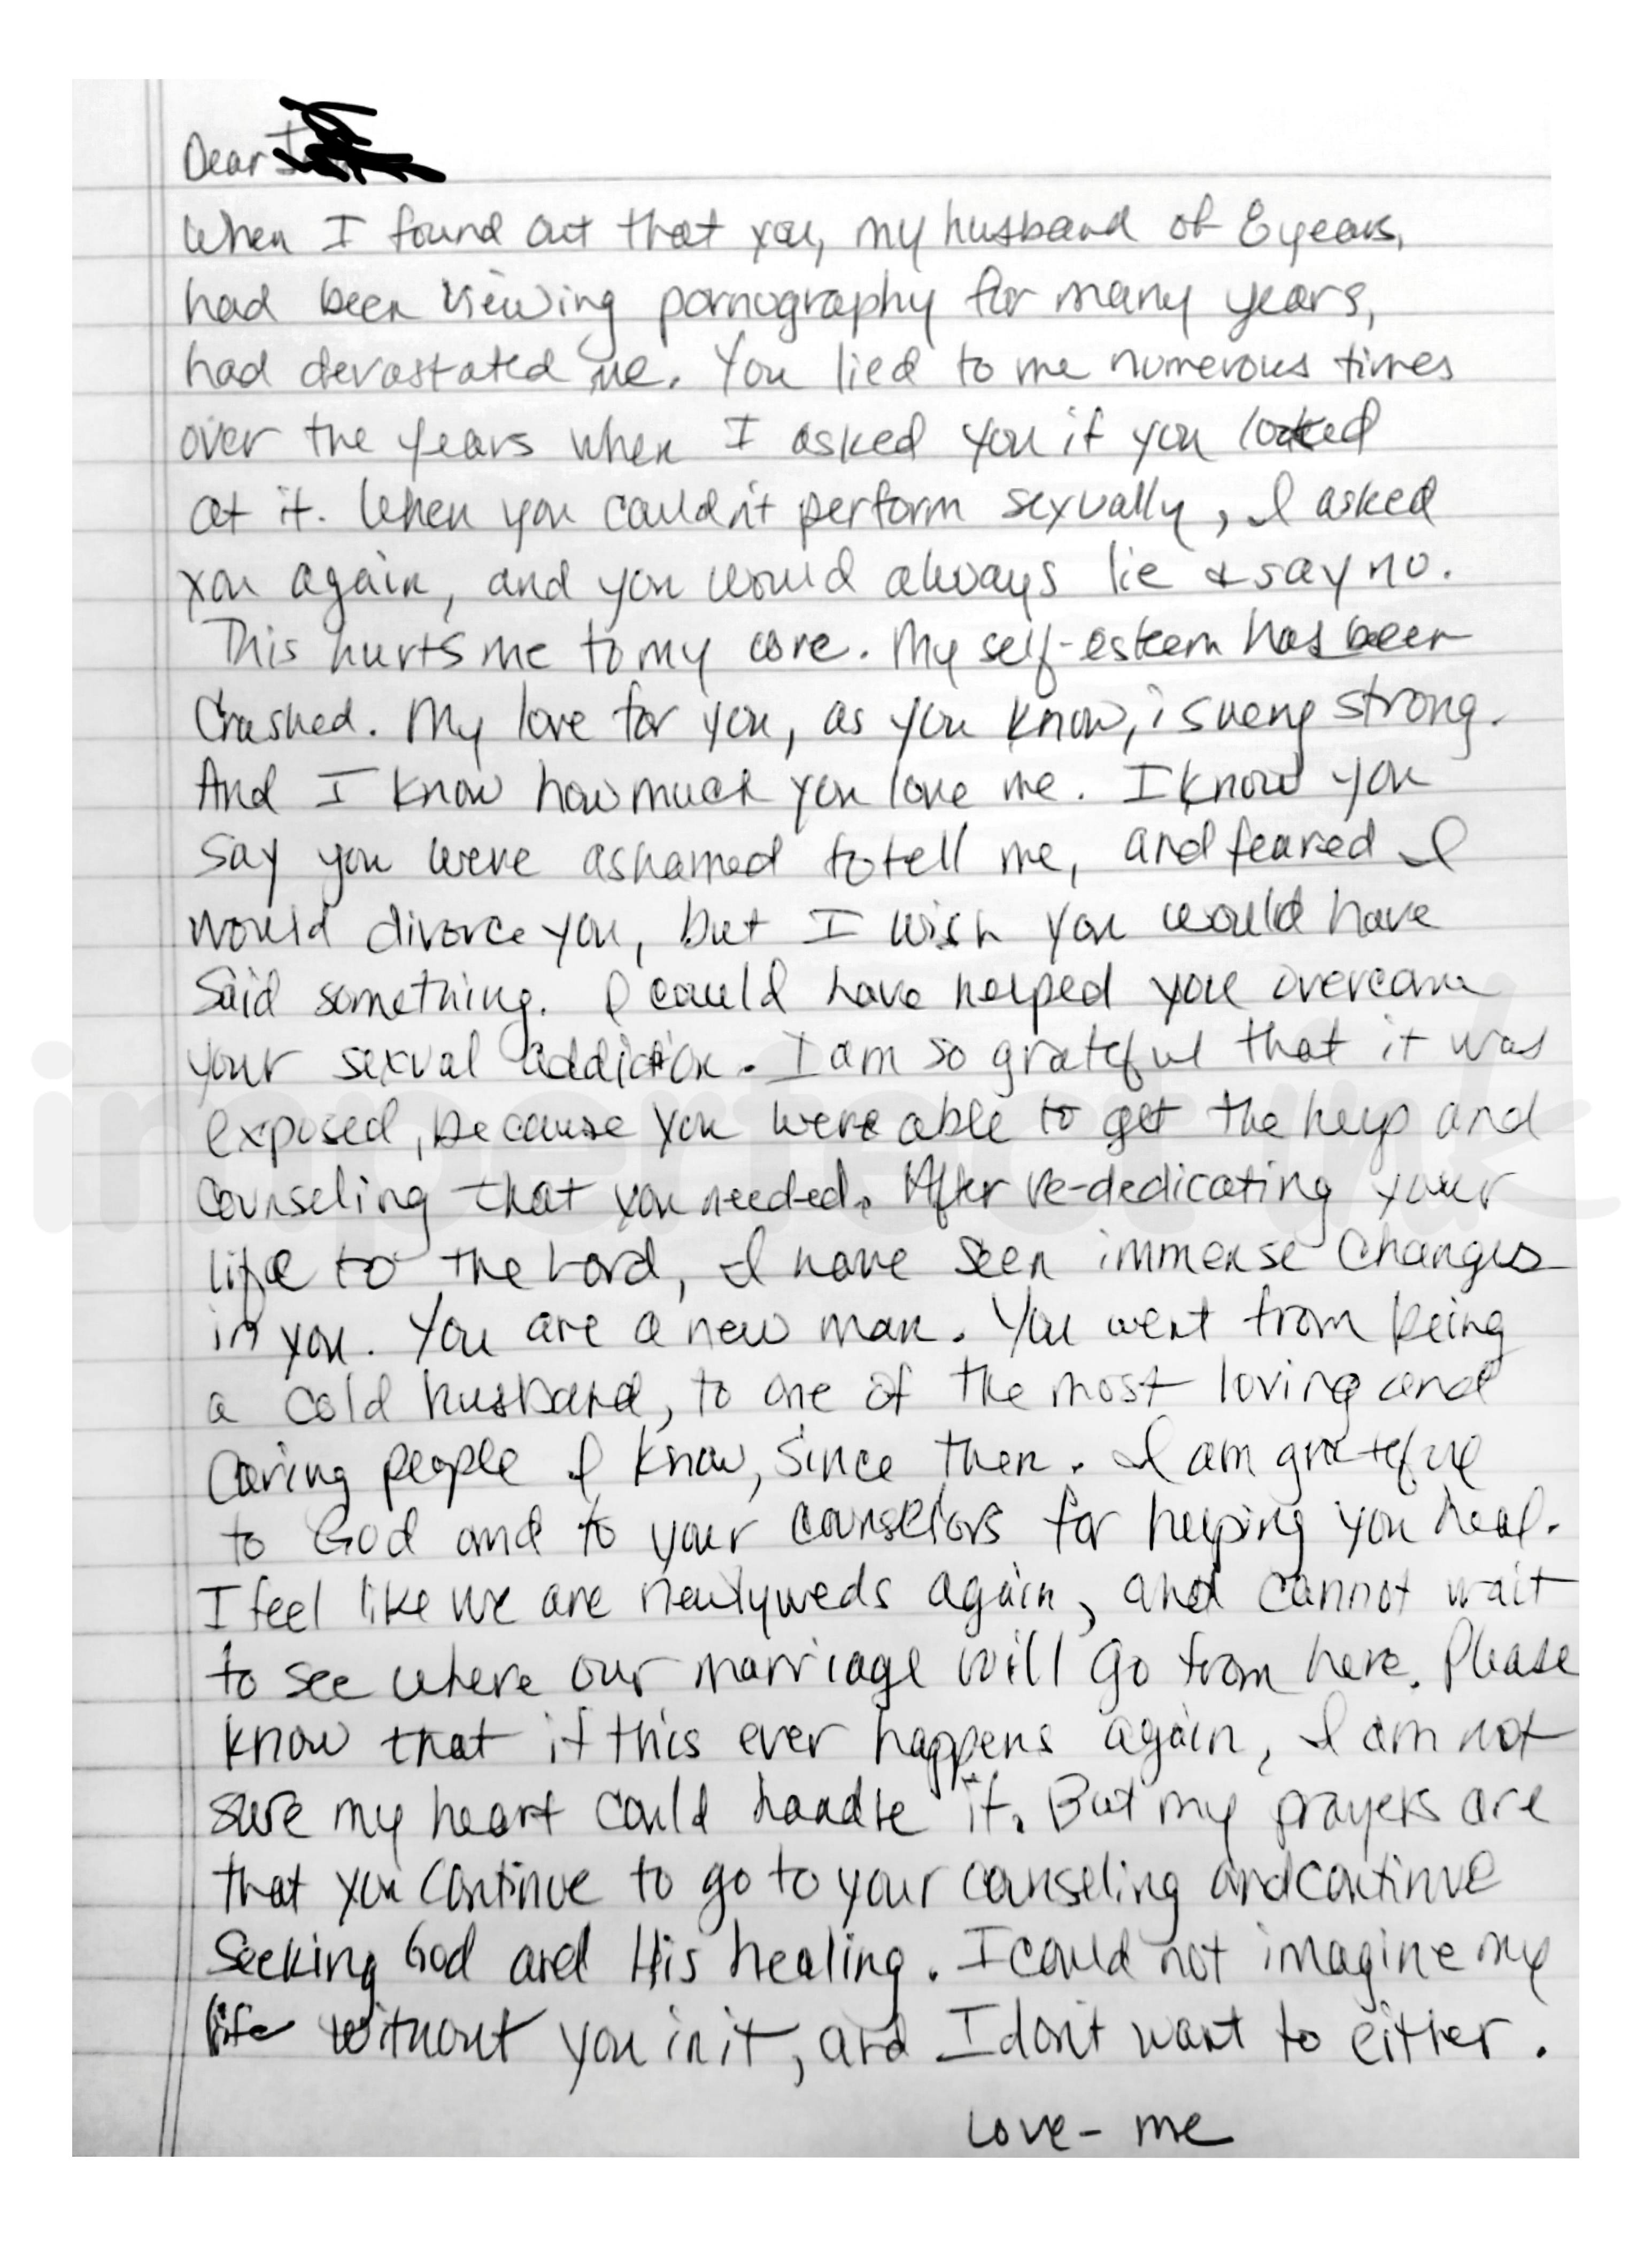 Dear
When I found out that you, my husband of 8 years,
had been viewing pornography for many years,
had devastated me. You lied to me numerous times
over the years when I asked you if you looked
at it. When you couldn't perform sexually, I asked
you again, and you would always lie & say no.
This hurts me to my core. My self-esteem has been
crushed. My love for you, as you know, is very strong.
And I know how much you love me. I know you
say you were ashamed to tell me, and feared I
would divorce you, but I wish you would have
said something. I could have helped you overcome
your sexual addiction. I am so grateful that it was
exposed, because you were able to get the help and
counseling that you needed. After re-dedicating your
life to the Lord, I have seen immense changes
in you. You are a new man. You went from being
a cold husband, to one of the most loving and
caring people I know, since then. I am grateful
to God and to your counselors for helping you heal.
I feel like we are newlyweds again, and cannot wait
to see where our marriage will go from here. Please
know that if this ever happens again, I am not
sure my heart could handle it. But my prayers are
that you continue to go to your counseling and continue
seeking God and His healing. I could not imagine my
life without you in it, and I don't want to either.
Love - me
imperfect ink